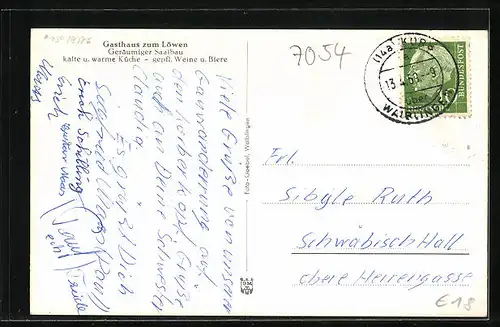 Gasthaus zum Löwen
Geräumiger Saalbau
kalte u. warme Küche – gepfl. Weine u. Biere
Viele Grüße von unserer
Gauwanderung auf
den Korber Kopf. Grüße
auch an Deine Schwester
Claudia.
Es grüßt Dich
Erich Schilling
Foto-Goebel, Waiblingen
7054
(14a) KORB
über
WAIBLINGEN
BUNDESPOST
Frl.
Sibylle Ruth
Schwäbisch Hall
obere Herrengasse
€18